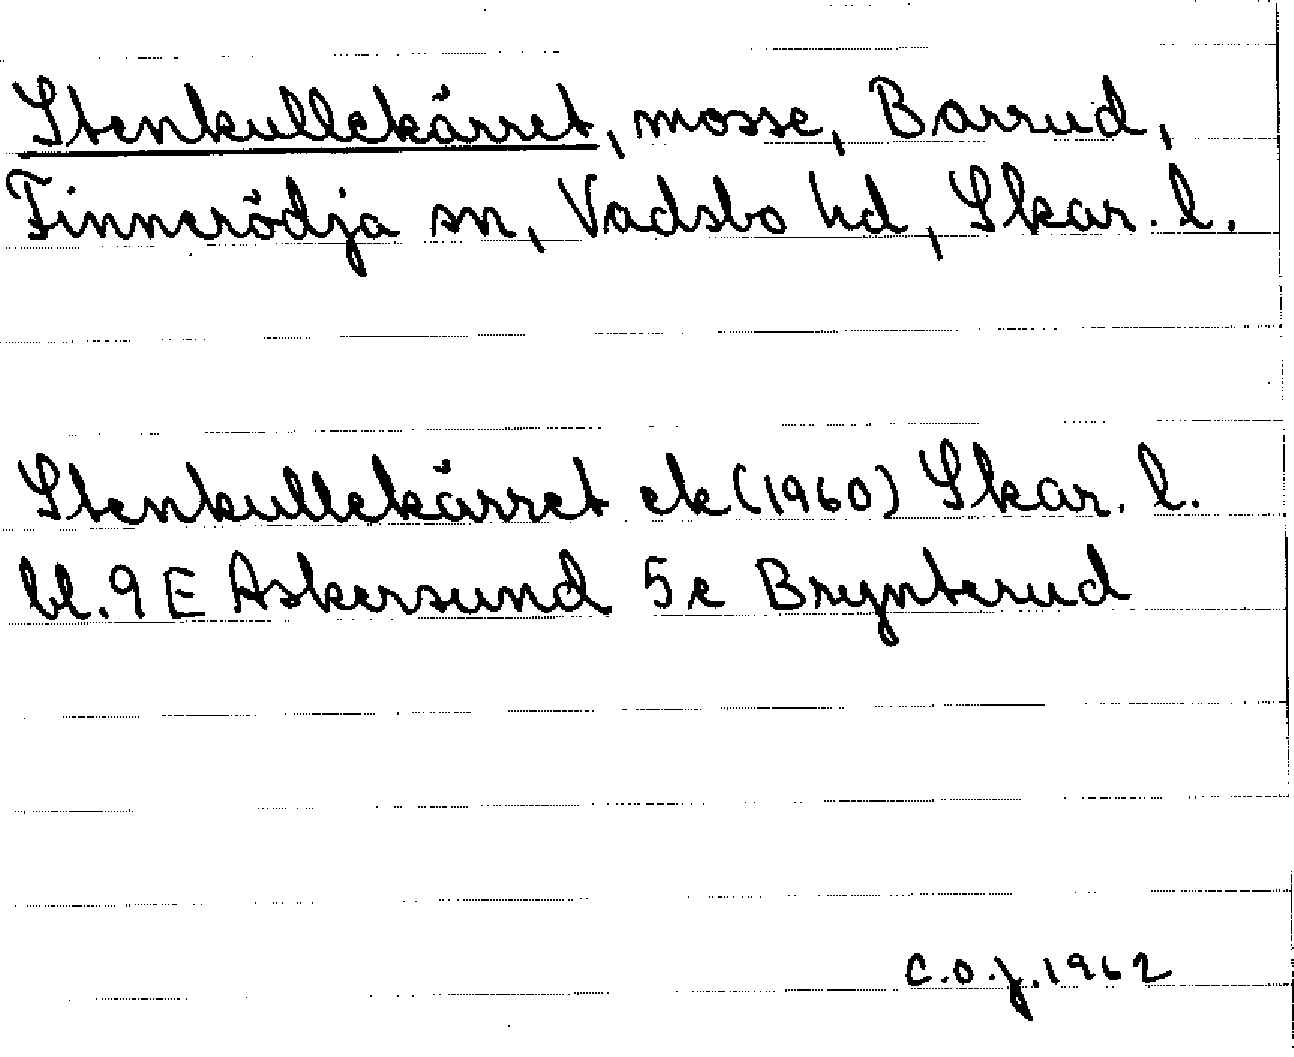 Stenkullekärret, mosse, Barrud,
Finnerödja sn, Vadsbo hd, Skar. l.
Stenkullekärret ek (1960) Skar. l.
bl. 9 E Askersund 5e Brynterud
C.O.J. 1962